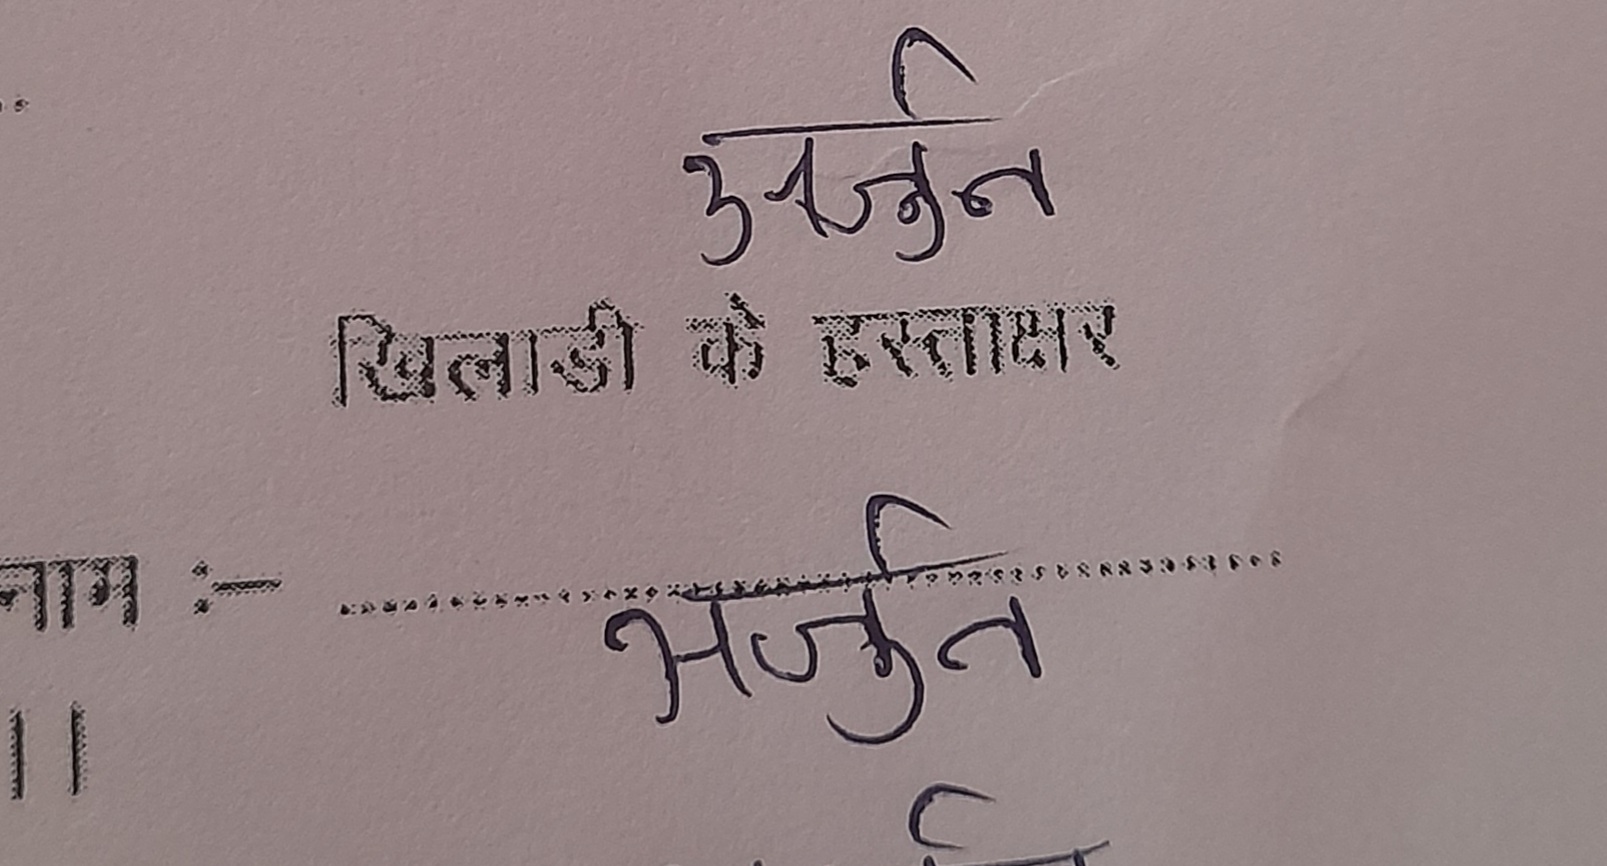 अर्जुन
खिलाडी के हस्ताक्षर
नाम :- ....................
अर्जुन
।।